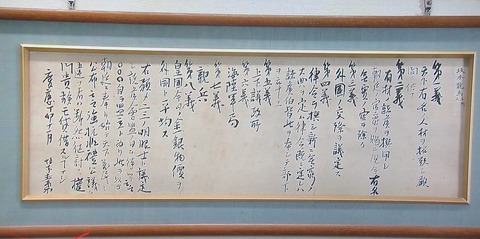 第一義
天下有名ノ人材を招致シ顧
問ニ供フ
第二義
有材ノ諸侯ヲ撰用シ
朝廷ノ官爵ヲ賜ヒ現今有名
無実ノ官ヲ除ク
第三義
外国ノ交際ヲ議定ス
第四義
律令ヲ撰シ新ニ無窮ノ
大典ヲ定ム律令既ニ定レバ
諸侯伯皆此ヲ奉ジテ部下
ヲ率ユ
第五義
上下議政所
第六義
海陸軍局
第七義
親兵
第八義
皇国今日ノ金銀物価ヲ
外国ト平均ス
右預メ二三ノ明眼士ト議定
シ諸侯会盟ノ日ヲ待ツテ云云
○○○自ラ盟主ト為リ此ヲ以テ
朝廷ニ奉リ始テ天下万民ニ
公布云云強抗非礼公議ニ
違フ者ハ断然征討ス権
門貴族モ貸借スルコトナシ
慶応丁卯十一月 坂本直柔